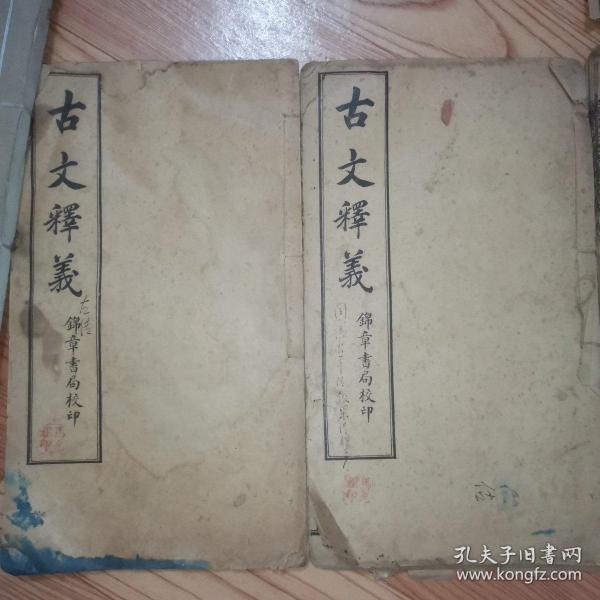 古文釋義
錦章書局校印
左傳
古文釋義
錦章書局校印
孔夫子旧书网
www.kongfz.com